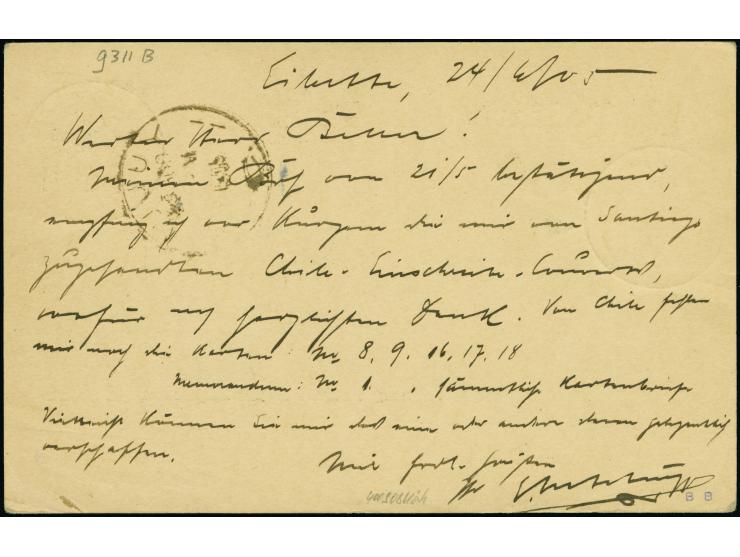 9311 B
24/6/05
Werter Herr !
Meinen vom 21/5 bestätigend,
empfing ich vor Kurzem die mir von Santiago
zugesandten Chile-Einschreib-Couverts,
wofür noch herzlichsten Dank. Von Chile fehlen
mir noch die Karten: No 8, 9, 16, 17, 18
Memorandum: No 1. , sämmtliche Kartenbriefe
Vielleicht können Sie mir das eine oder andere davon gelegentlich
verschaffen.
Mit frdl. Grüßen
Ihr
B B